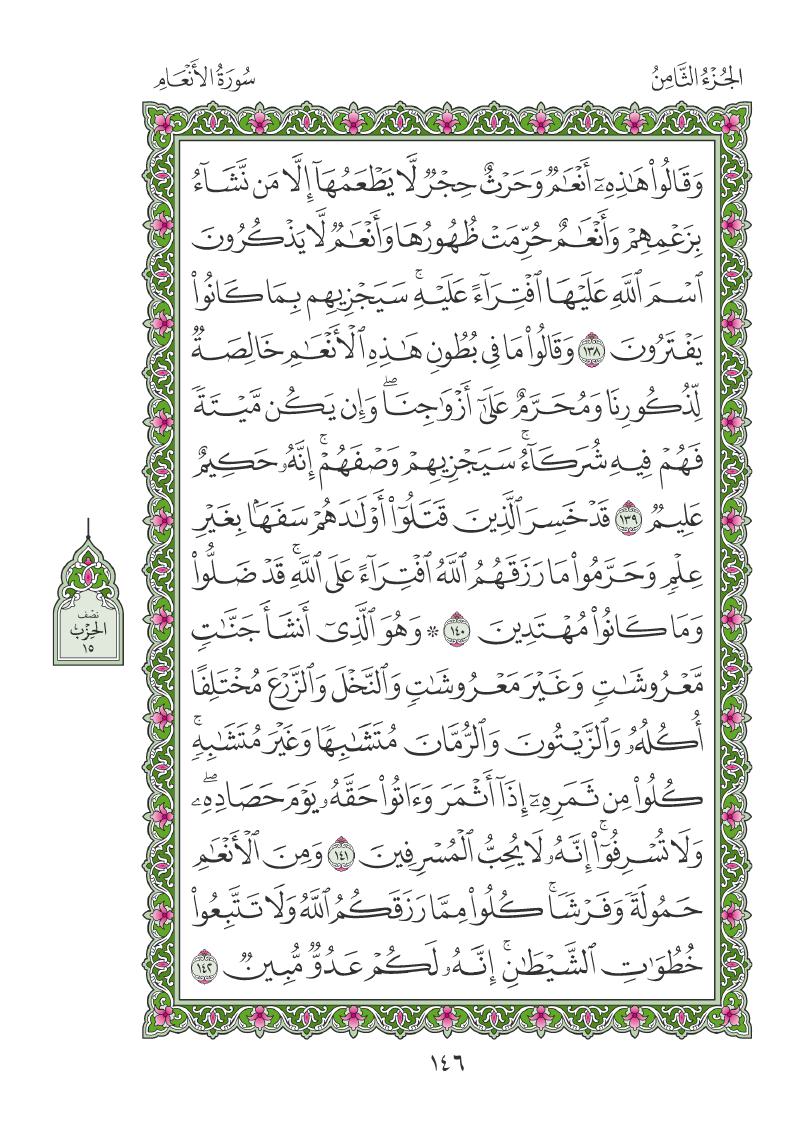 الجُزْءُ الثَّامِنُ
سُورَةُ الأَنْعَامِ
وَقَالُوا۟ هَٰذِهِۦٓ أَنْعَٰمٌ وَحَرْثٌ حِجْرٌ لَّا يَطْعَمُهَآ إِلَّا مَن نَّشَآءُ
بِزَعْمِهِمْ وَأَنْعَٰمٌ حُرِّمَتْ ظُهُورُهَا وَأَنْعَٰمٌ لَّا يَذْكُرُونَ
ٱسْمَ ٱللَّهِ عَلَيْهَا ٱفْتِرَآءً عَلَيْهِ ۚ سَيَجْزِيهِم بِمَا كَانُوا۟
يَفْتَرُونَ ١٣٨ وَقَالُوا۟ مَا فِى بُطُونِ هَٰذِهِ ٱلْأَنْعَٰمِ خَالِصَةٌ
لِّذُكُورِنَا وَمُحَرَّمٌ عَلَىٰٓ أَزْوَٰجِنَا ۖ وَإِن يَكُن مَّيْتَةً
فَهُمْ فِيهِ شُرَكَآءُ ۚ سَيَجْزِيهِمْ وَصْفَهُمْ ۚ إِنَّهُۥ حَكِيمٌ
عَلِيمٌ ١٣٩ قَدْ خَسِرَ ٱلَّذِينَ قَتَلُوٓا۟ أَوْلَٰدَهُمْ سَفَهًۢا بِغَيْرِ
عِلْمٍ وَحَرَّمُوا۟ مَا رَزَقَهُمُ ٱللَّهُ ٱفْتِرَآءً عَلَى ٱللَّهِ ۚ قَدْ ضَلُّوا۟
وَمَا كَانُوا۟ مُهْتَدِينَ ١٤٠ ۞ وَهُوَ ٱلَّذِىٓ أَنشَأَ جَنَّٰتٍ
مَّعْرُوشَٰتٍ وَغَيْرَ مَعْرُوشَٰتٍ وَٱلنَّخْلَ وَٱلزَّرْعَ مُخْتَلِفًا
أُكُلُهُۥ وَٱلزَّيْتُونَ وَٱلرُّمَّانَ مُتَشَٰبِهًا وَغَيْرَ مُتَشَٰبِهٍ ۚ
كُلُوا۟ مِن ثَمَرِهِۦٓ إِذَآ أَثْمَرَ وَءَاتُوا۟ حَقَّهُۥ يَوْمَ حَصَادِهِۦ ۖ
وَلَا تُسْرِفُوٓا۟ ۚ إِنَّهُۥ لَا يُحِبُّ ٱلْمُسْرِفِينَ ١٤١ وَمِنَ ٱلْأَنْعَٰمِ
حَمُولَةً وَفَرْشًا ۚ كُلُوا۟ مِمَّا رَزَقَكُمُ ٱللَّهُ وَلَا تَتَّبِعُوا۟
خُطُوَٰتِ ٱلشَّيْطَٰنِ ۚ إِنَّهُۥ لَكُمْ عَدُوٌّ مُّبِينٌ ١٤٢
نصف
الحزب
١٥
١٤٦